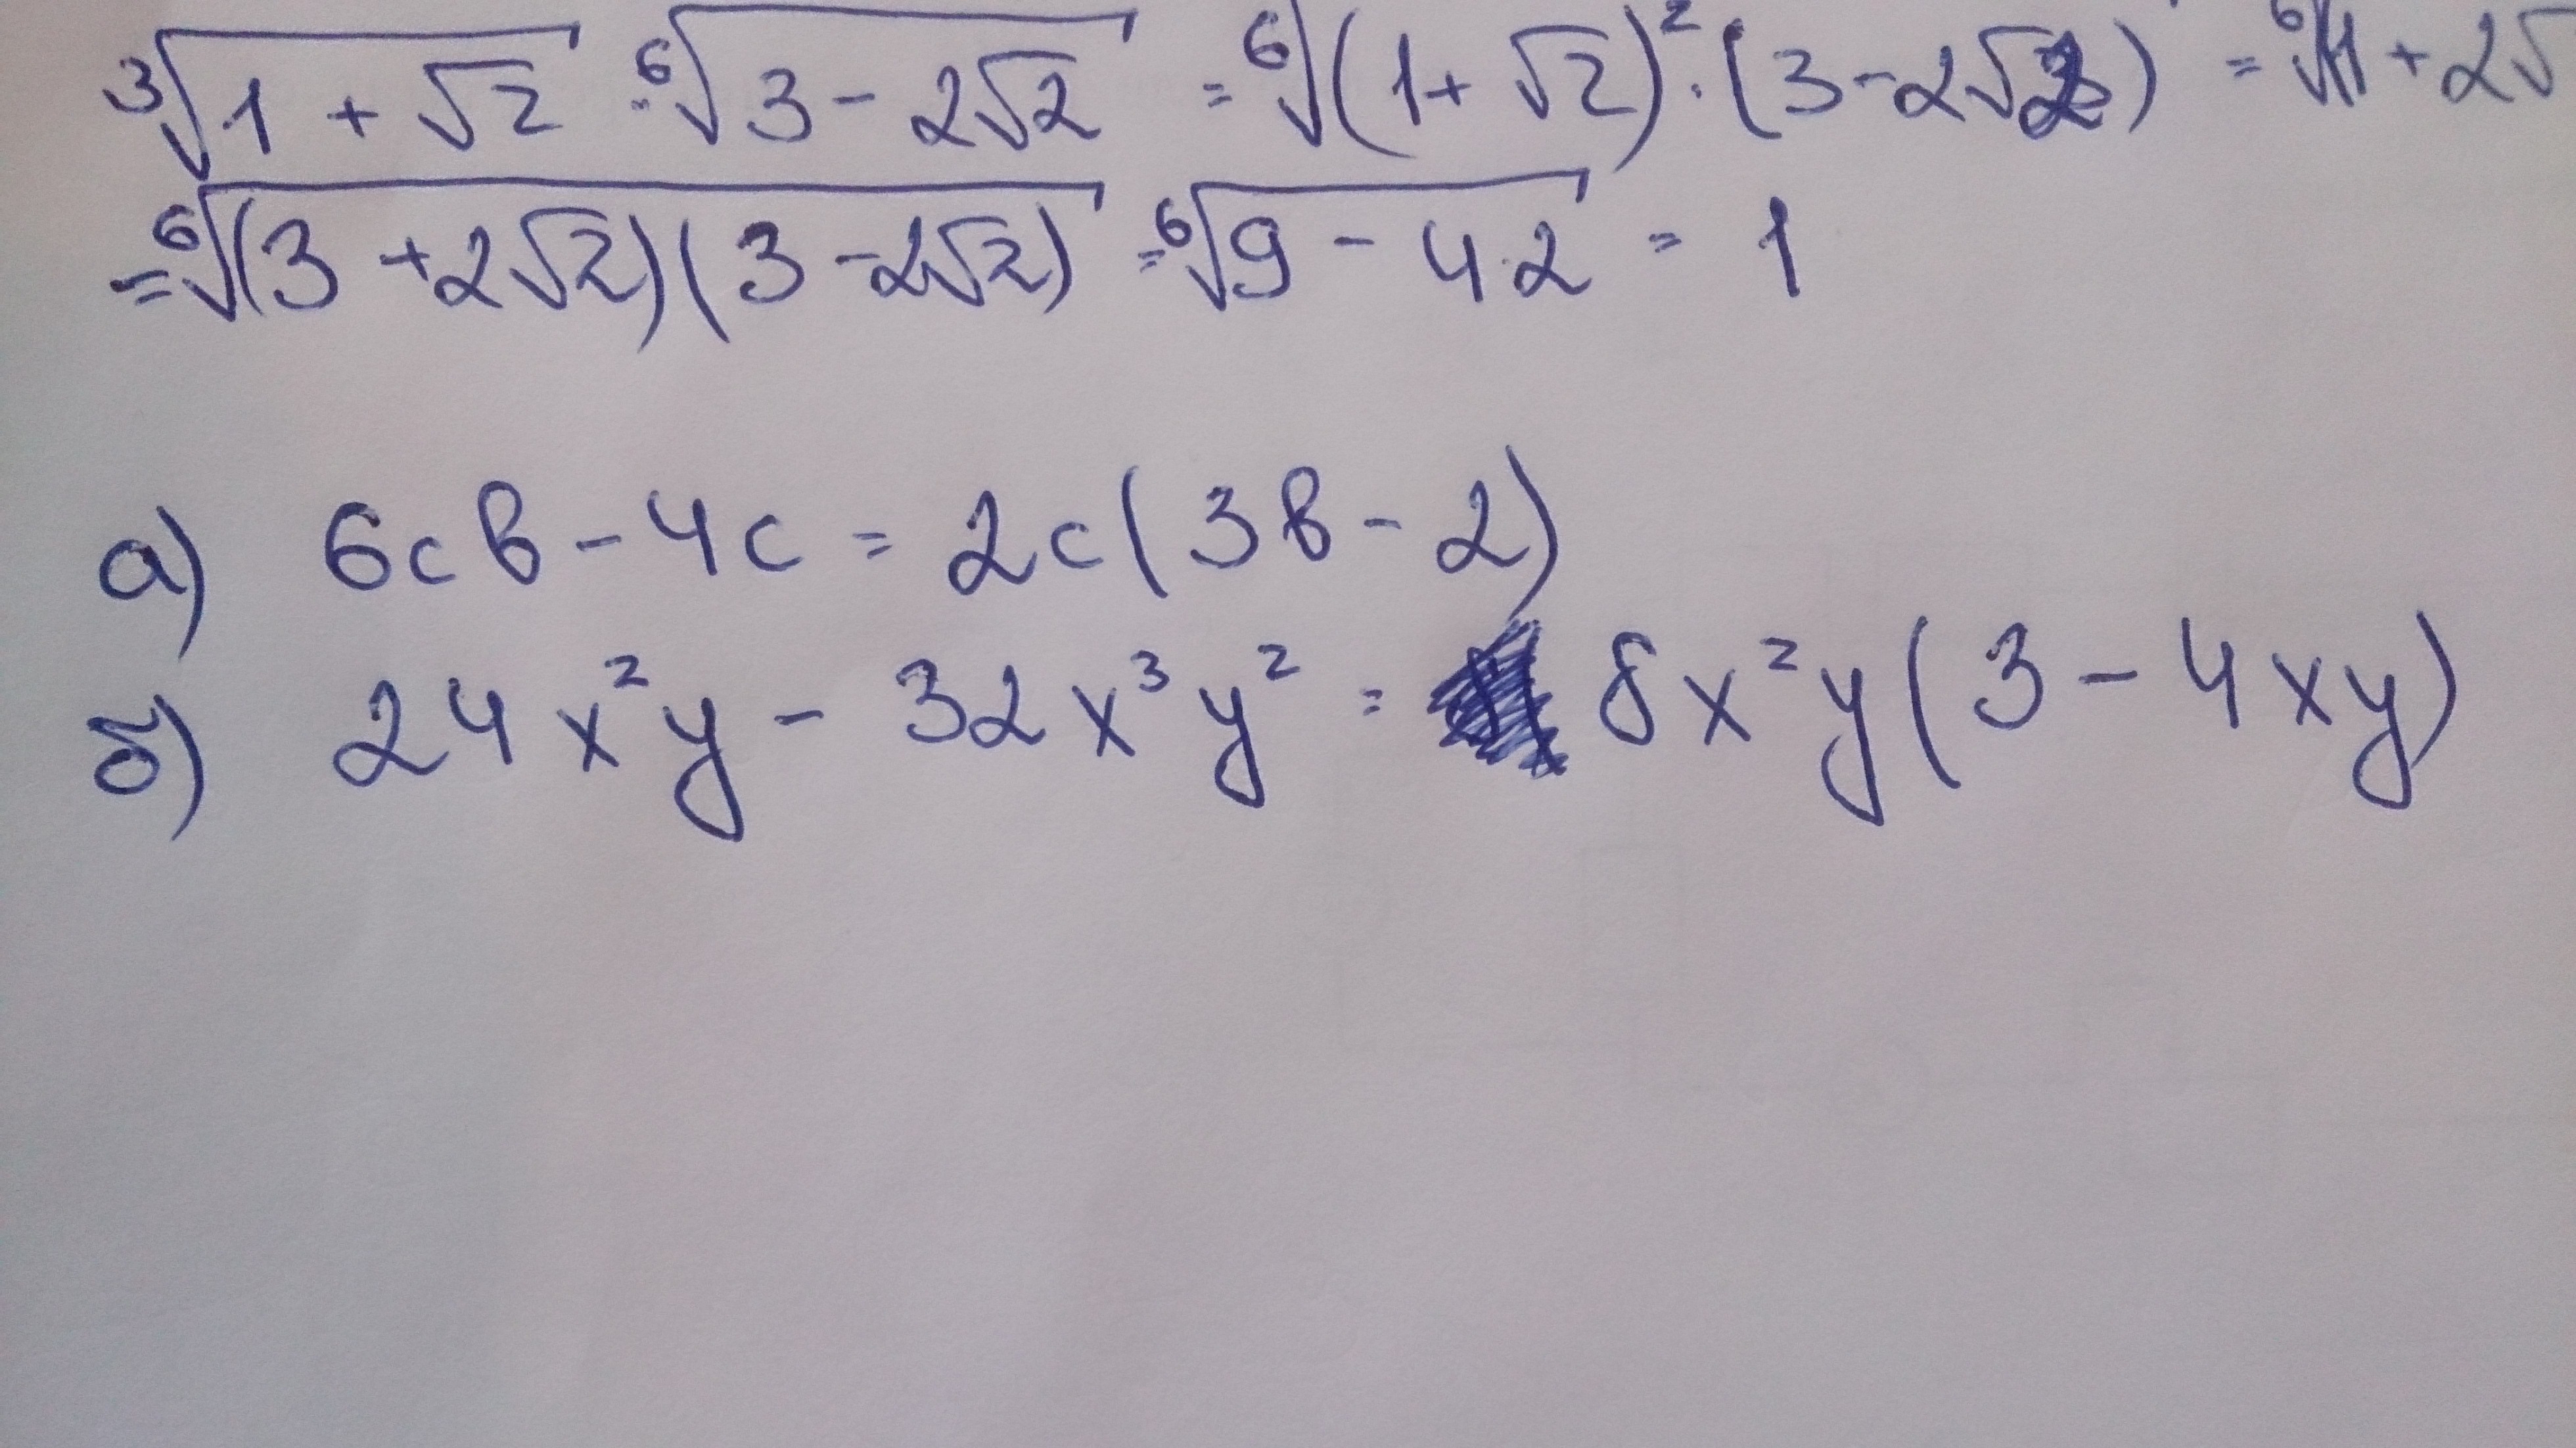 ∛(1 + √2) · ⁶√(3 - 2√2) = ⁶√((1 + √2)² · (3 - 2√2)) = ⁶√1 + 2√
= ⁶√((3 + 2√2)(3 - 2√2)) = ⁶√(9 - 4·2) = 1
а) 6cв - 4c = 2c(3в - 2)
б) 24x²y - 32x³y² = 8x²y(3 - 4xy)